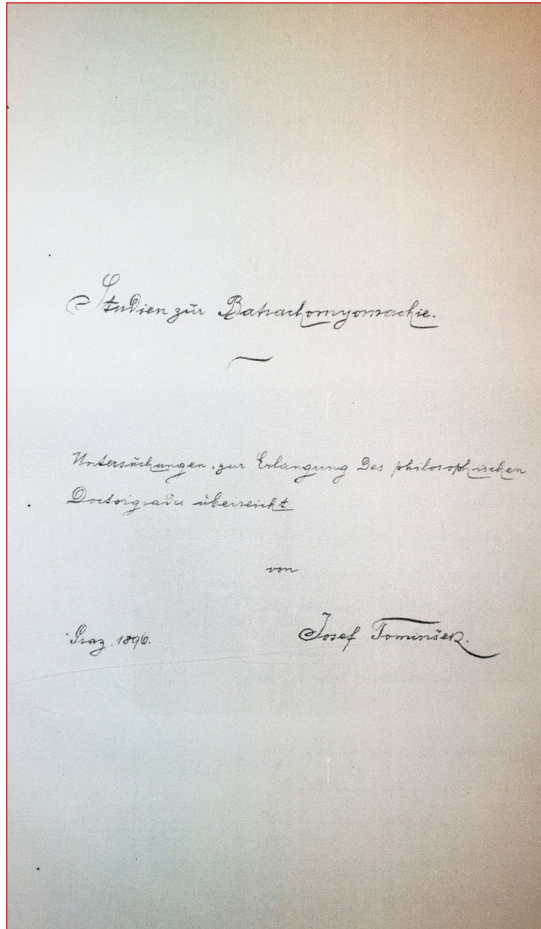 Studien zür Batrachomyomachie.
Untersüchungen, zur Erlangung des philosophischen
Doctorgrades überreicht
von
Graz, 1896. Josef Tominšek.